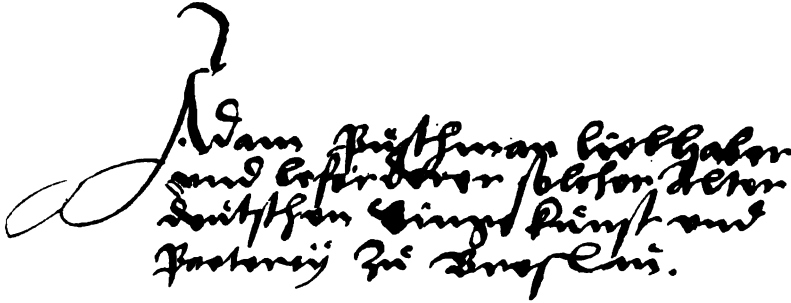 Adam Püschman liebhaber
und beförderer solcher Alten
deutschen Singe kunst und
Poeterey zu Breslau.